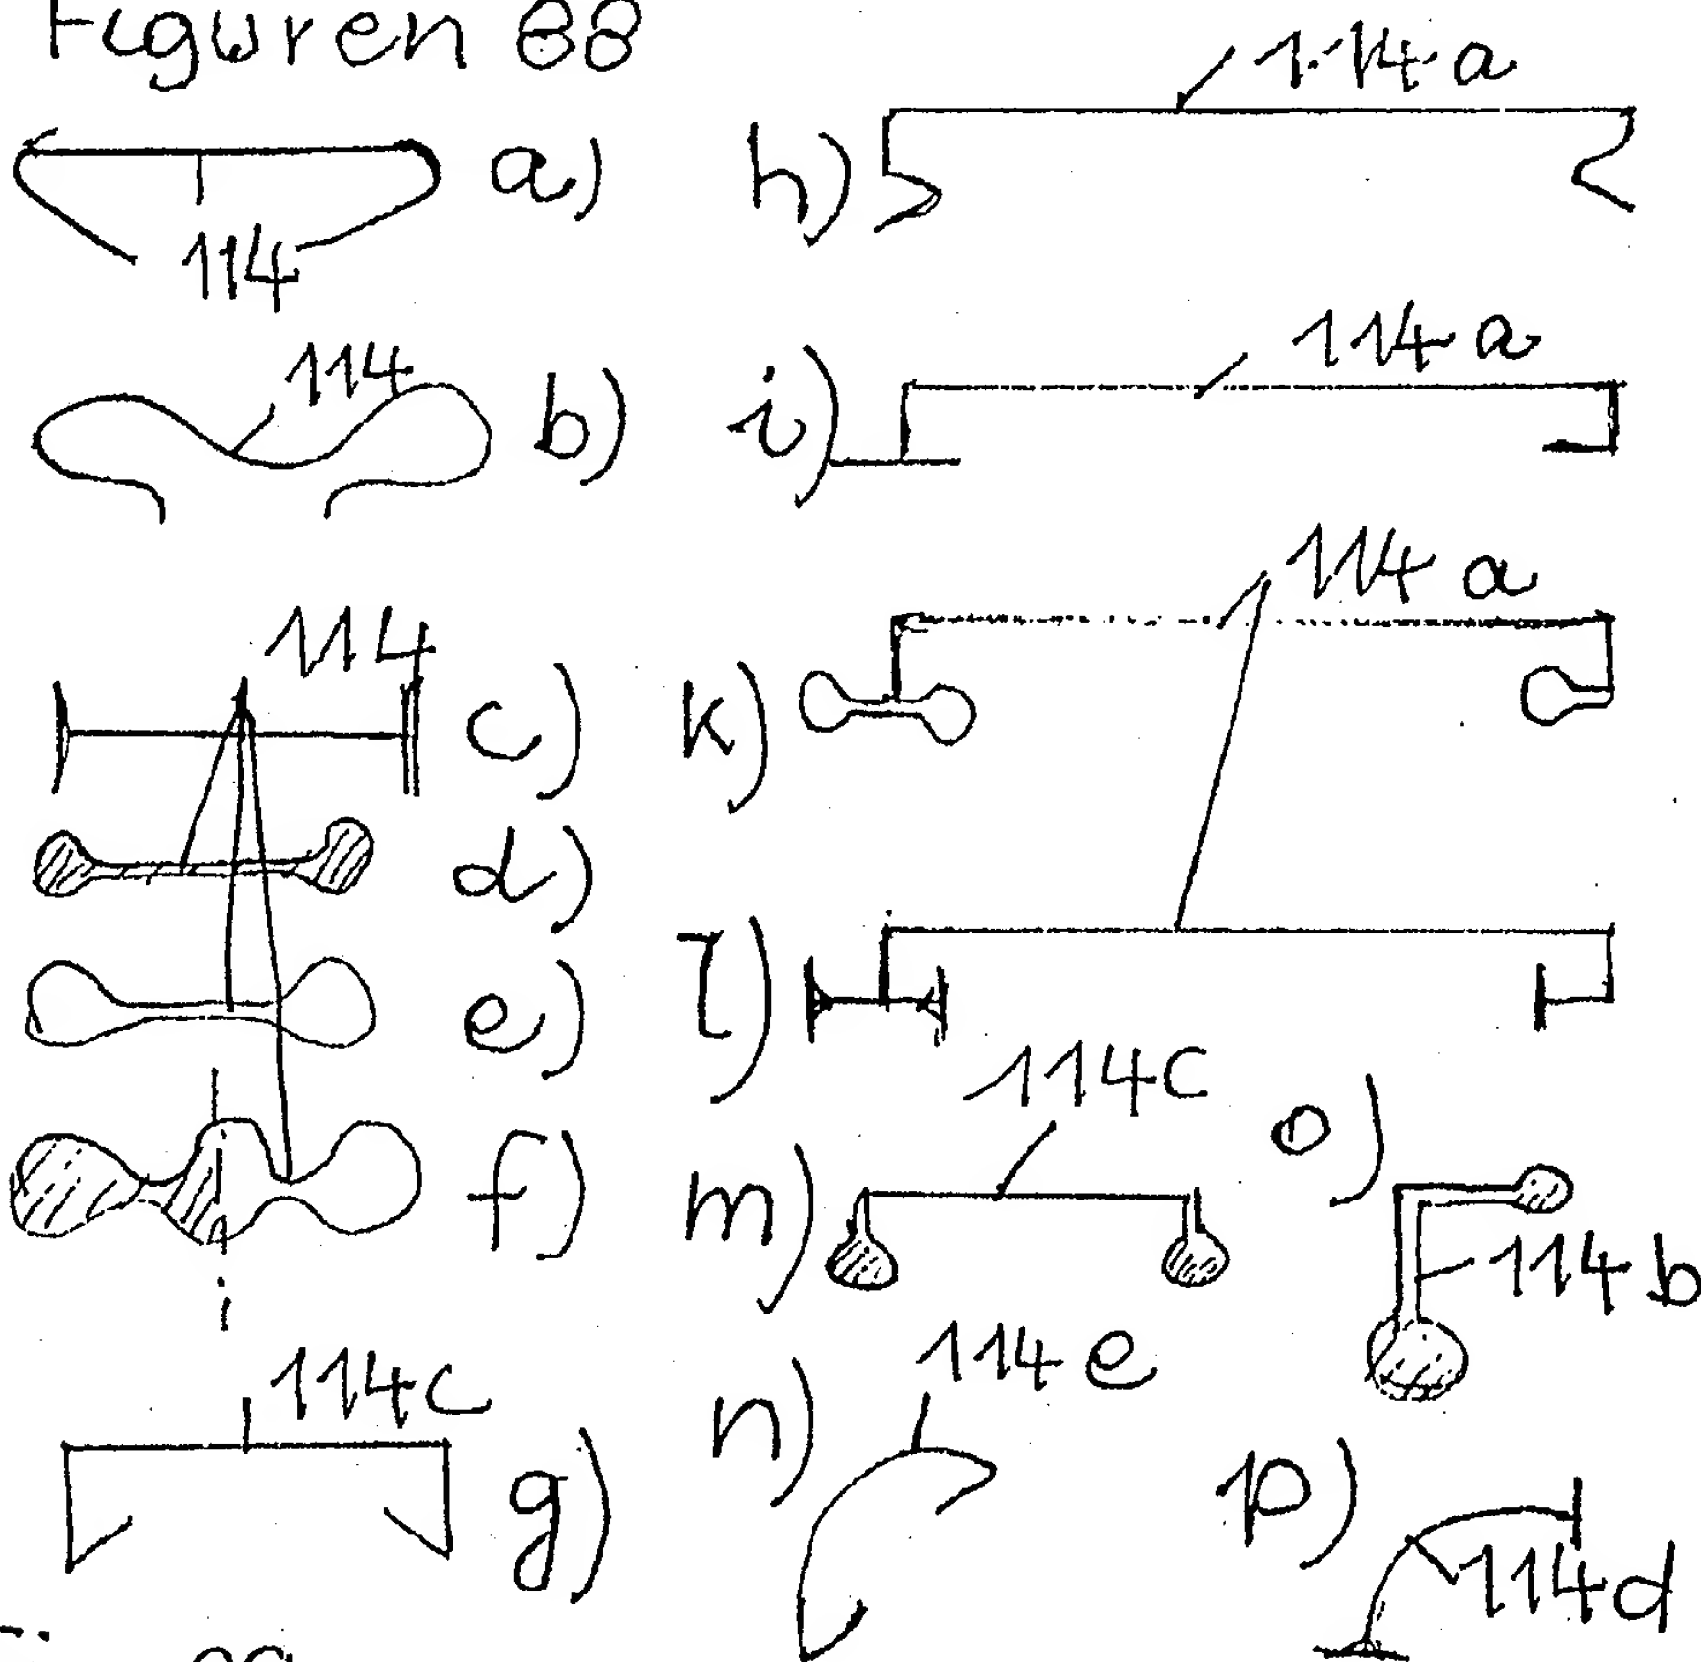 Figuren 88
a)
114
114
b)
114
c)
d)
e)
f)
114c
g)
114a
h)
114a
i)
114a
k)
l)
114c
m)
114e
n)
o)
114b
p)
114d